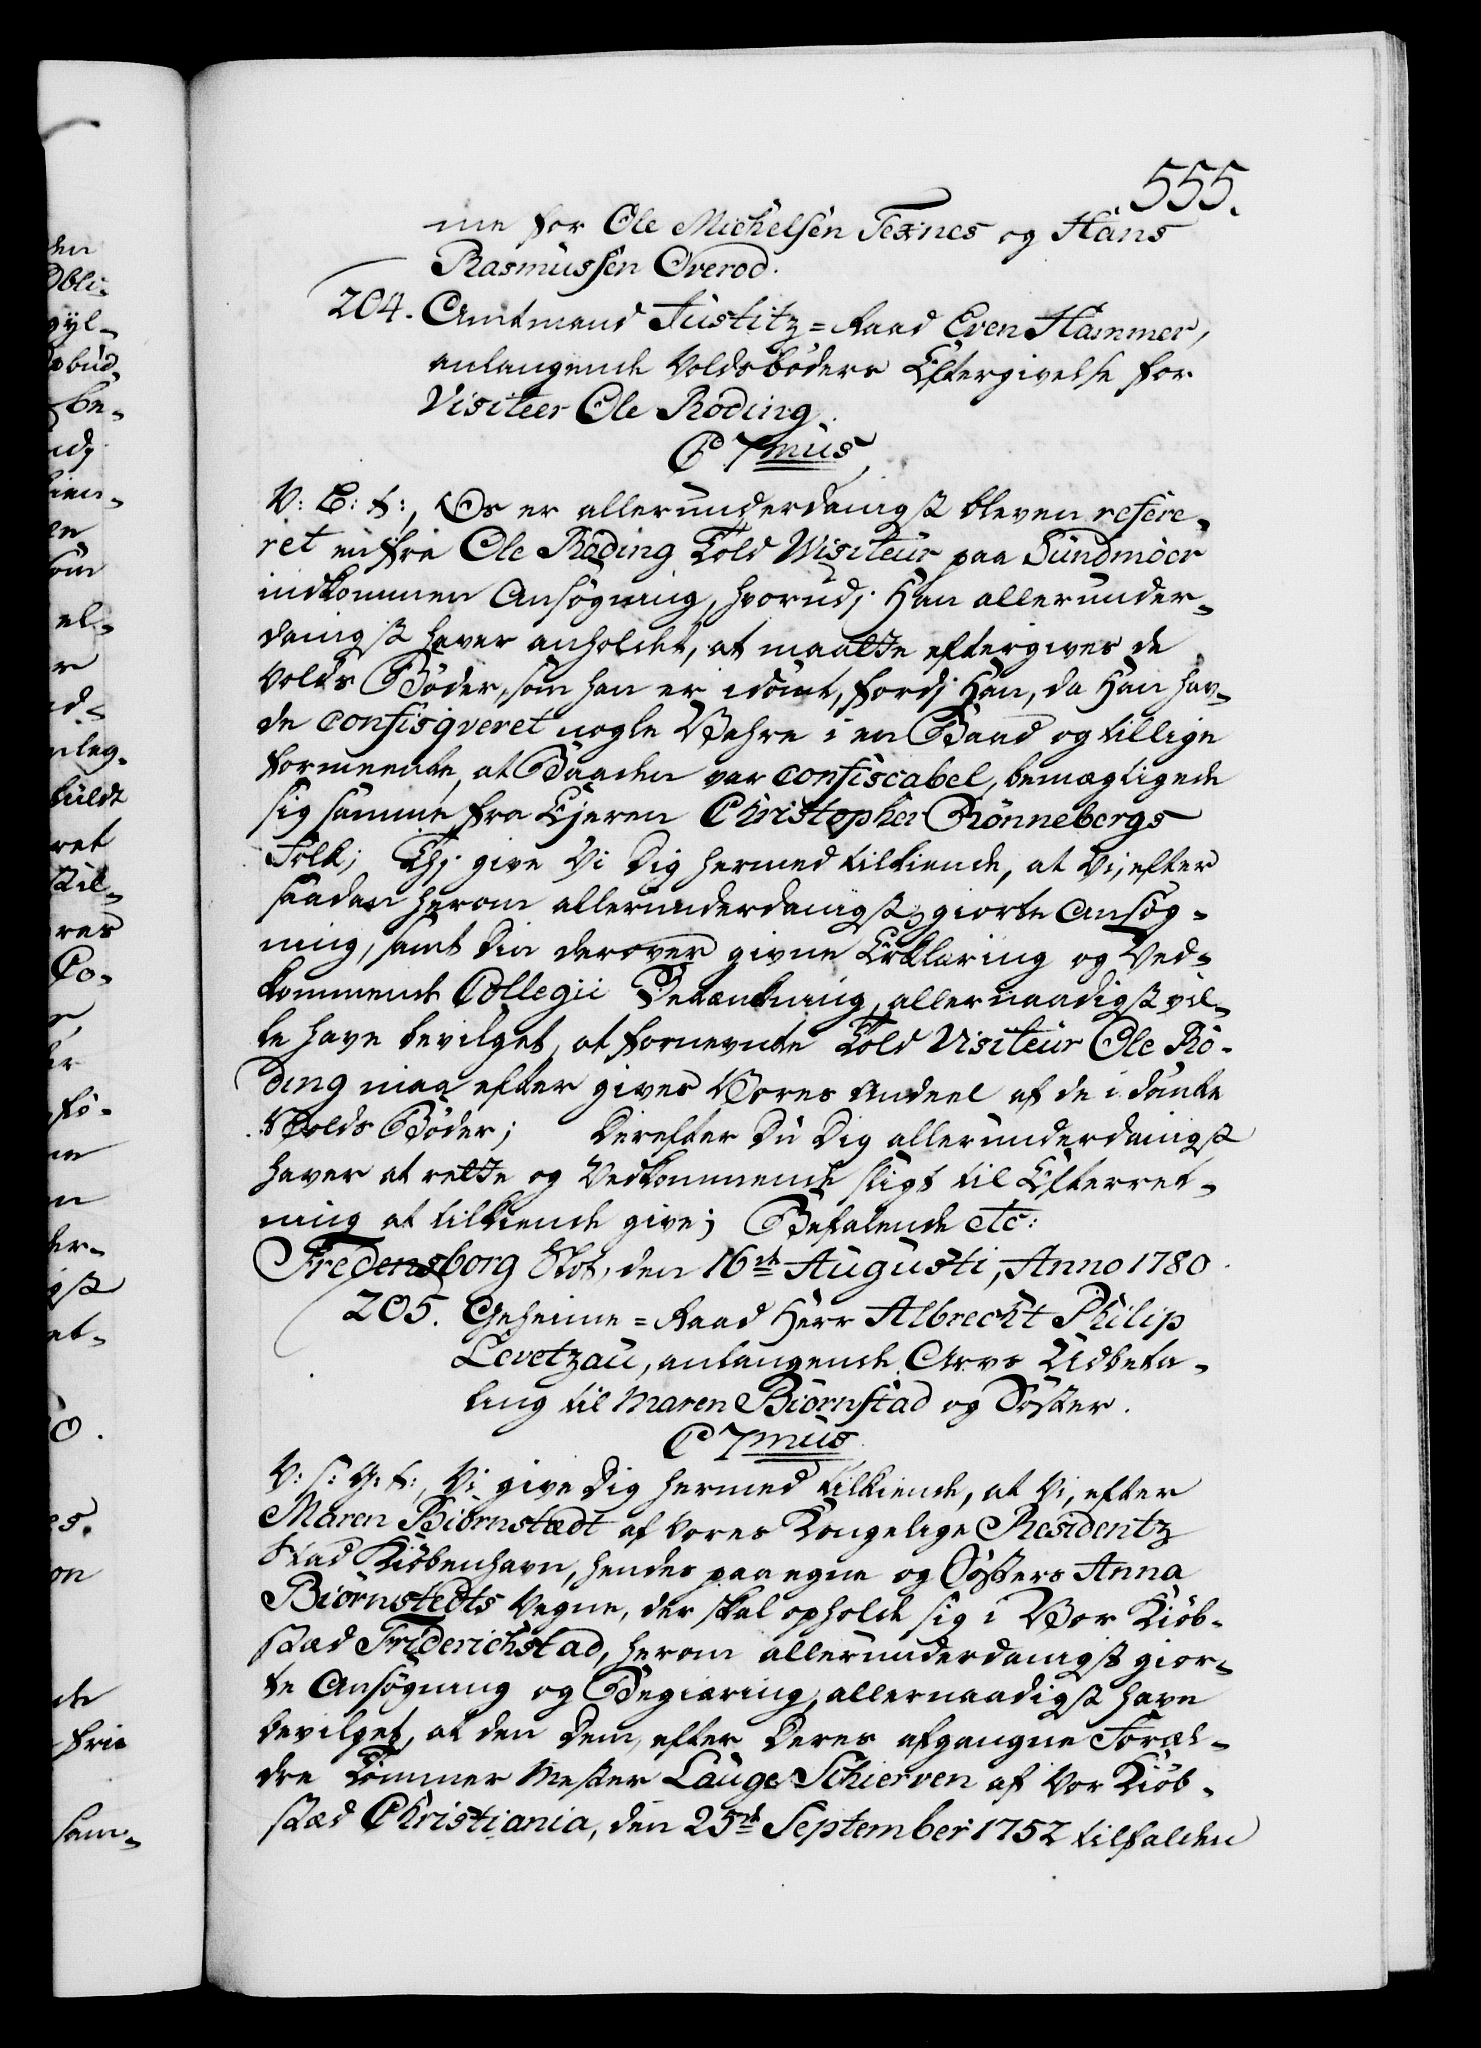 555.
me for Ole Michelsen Texnes og Hans
Rasmussen Overod.
204. Amtmand Justitz=Raad Even Hammer,
anlangende Voldsbøders Eftergivelse for
Visiteer Ole Røding.
C 7mus
V: B: t:, Os er allerunderdanigst bleven refere-
ret en fra Ole Røding Told Visiteur paa Sundmøer
indkommen Ansøgning, hvorudj Han allerunder-
danigst haver anholdet, at maatte eftergives de
Volds Bøder, som han er idømt, fordj Han, da Han hav-
de confisqveret nogle Vahre i en Baad og tillige
formeente, at Baaden var confiscabel, bemægtigede
sig samme fra Ejeren Christopher Rønnebergs
Folk; Thj give Vi Dig hermed tilkiende, at Vi, efter
saadan herom allerunderdanigst giorte Ansøg-
ning, samt Din derover givne Erklæring og Ved-
kommende Collegii Betænkning, allernaadigst vil-
le have bevilget, at fornevnte Told Visiteur Ole Rø-
ding maa efter gives Vores Andeel af de idømte
Volds Bøder; Derefter Du Dig allerunderdanigst
haver at rette og Vedkommende sligt til Efterret-
ning at tilkiende give; Befalende etc:
Fredensborg Slot, den 16de Augusti, Anno 1780.
205. Geheime=Raad Herr Albrecht Philip
Levetzau, anlangende Arvs Udbeta-
ling til Maren Biørnstad og Søster.
C 7mus
V: s: G: t:, Vi give Dig hermed tilkiende, at Vi, efter
Maren Biørnstædt af Vores Kongelige Residentz
Stad Kiöbenhavn, hendes paa egne og Søsters Anna
Biørnstedts Vegne, der skal opholde sig i Vor Kiøb-
stæd Friderichstad, herom allerunderdanigst gior-
te Ansøgning og Begiæring, allernaadigst have
bevilget, at den Dem, efter Deres afgangne Foræl-
dre Tømmer Mester Lauge Schierven af Vor Kiøb-
stæd Christiania, den 25de September 1752 tilfaldne